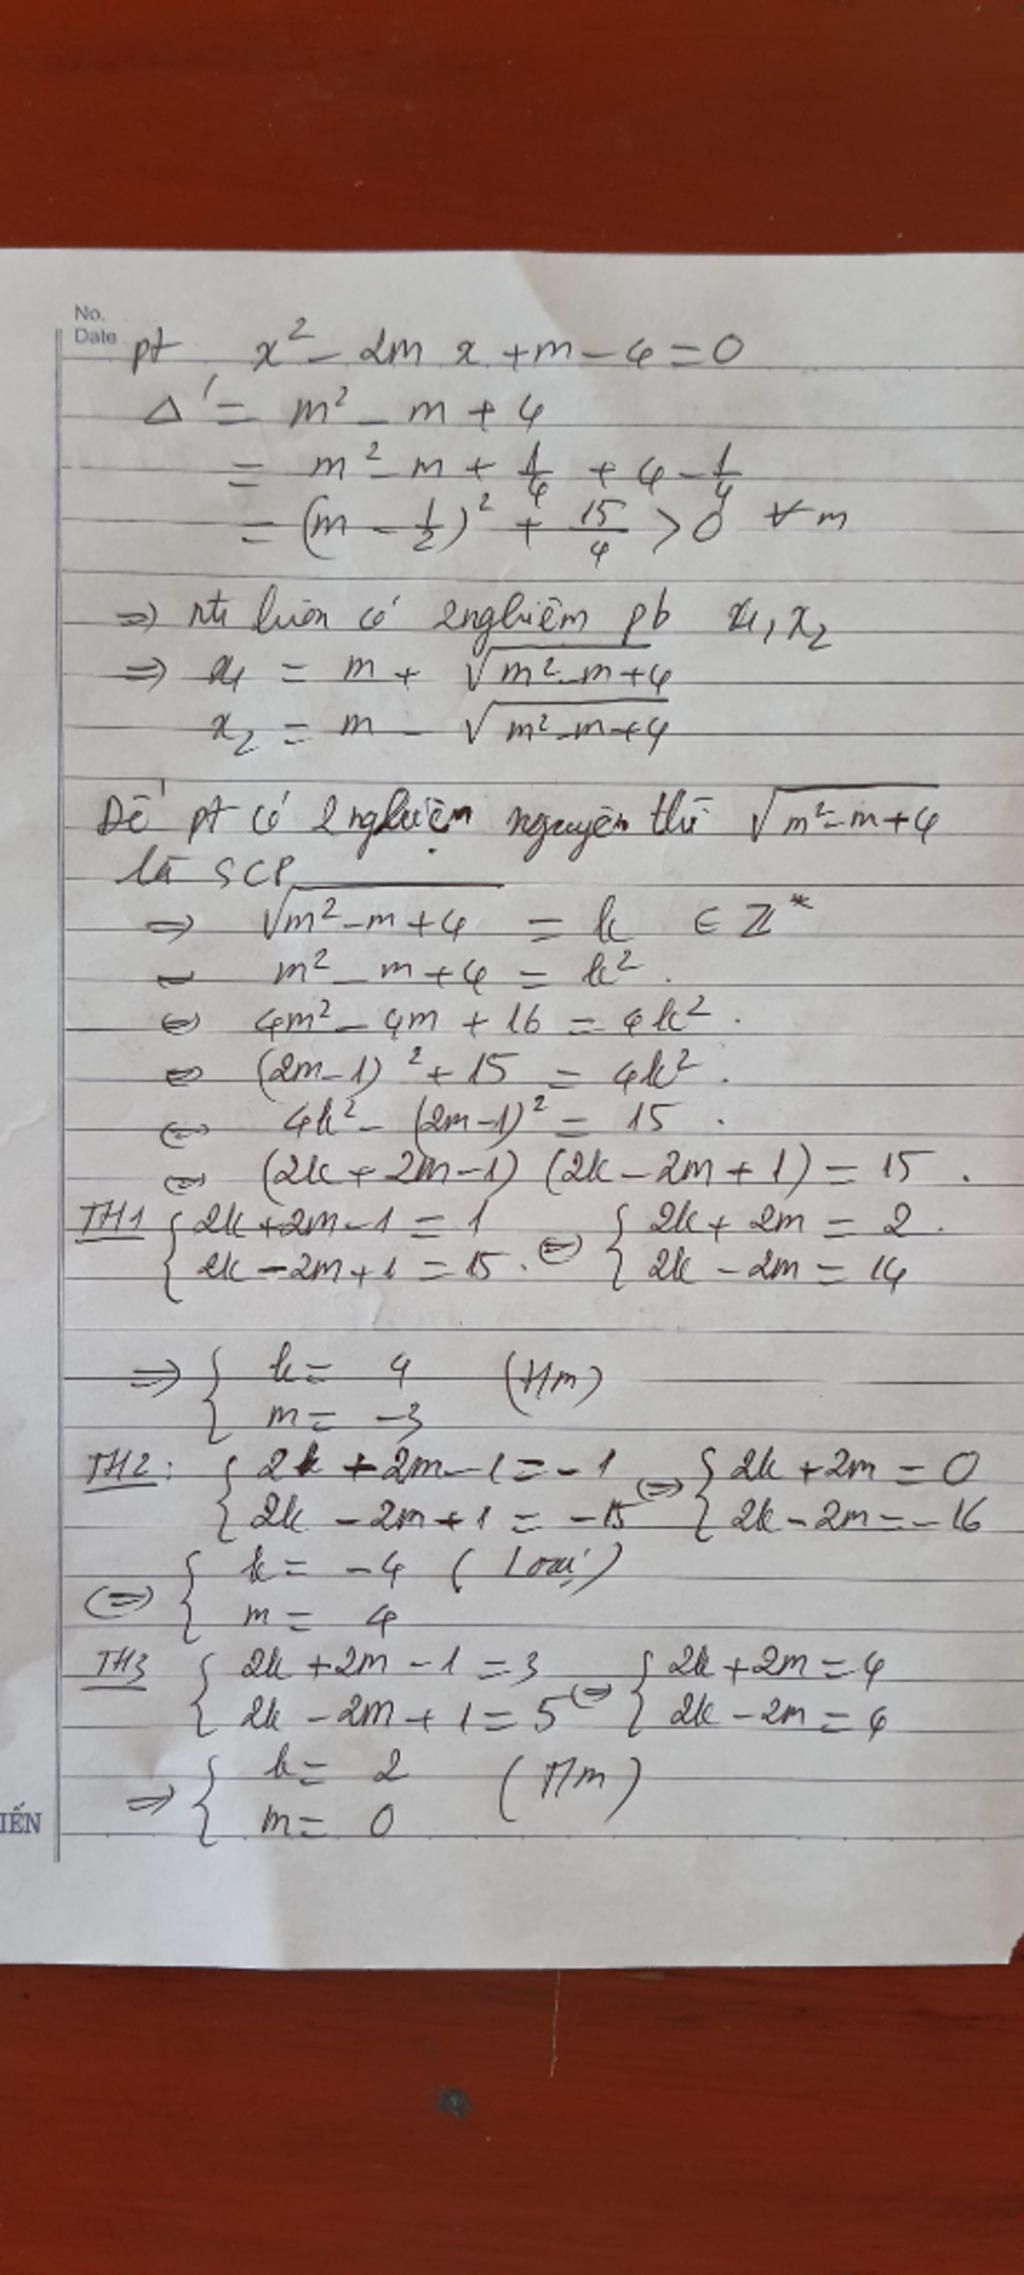 No.
Date
pt x² - 2m x + m - 4 = 0
Δ' = m² - m + 4
= m² - m + 1/4 + 4 - 1/4
= (m - 1/2)² + 15/4 > 0 ∀ m
=> luôn có 2 nghiệm pb x₁, x₂
=> x₁ = m + √(m² - m + 4)
x₂ = m - √(m² - m + 4)
Để pt có 2 nghiệm nguyên thì √(m² - m + 4)
là SCP
=> √(m² - m + 4) = k ∈ Z*
m² - m + 4 = k².
<=> 4m² - 4m + 16 = 4k².
<=> (2m-1)² + 15 = 4k².
<=> 4k² - (2m-1)² = 15.
<=> (2k + 2m - 1) (2k - 2m + 1) = 15.
TH1 { 2k + 2m - 1 = 1 <=> { 2k + 2m = 2.
2k - 2m + 1 = 15. 2k - 2m = 14
=> { k = 4 (t/m)
m = -3
TH2: { 2k + 2m - 1 = -1 <=> { 2k + 2m = 0
2k - 2m + 1 = -15 2k - 2m = -16
<=> { k = -4 (Loại)
m = 4
TH3 { 2k + 2m - 1 = 3 <=> { 2k + 2m = 4
2k - 2m + 1 = 5 2k - 2m = 4
=> { k = 2 (T/m)
m = 0
IẾN